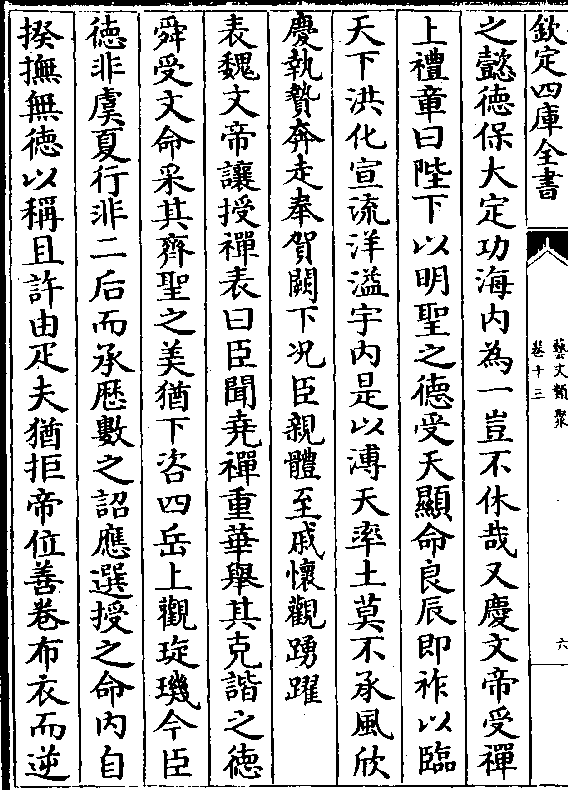 欽定四庫全書
藝文類聚
卷十三
六
之懿德保大定功海内為一豈不休哉又慶文帝受禪
上禮章曰陛下以明聖之德受天顯命良辰即祚以臨
天下洪化宣流洋溢宇内是以溥天率土莫不承風欣
慶執贄奔走奉賀闕下况臣親體至戚懷觀踴躍
表魏文帝讓授禪表曰臣聞堯禪重華舉其克諧之德
舜受文命采其齊聖之美猶下咨四岳上觀琁璣今臣
德非虞夏行非二后而承歷數之詔應選授之命内自
揆撫無德以稱且許由疋夫猶拒帝位善卷布衣而逆